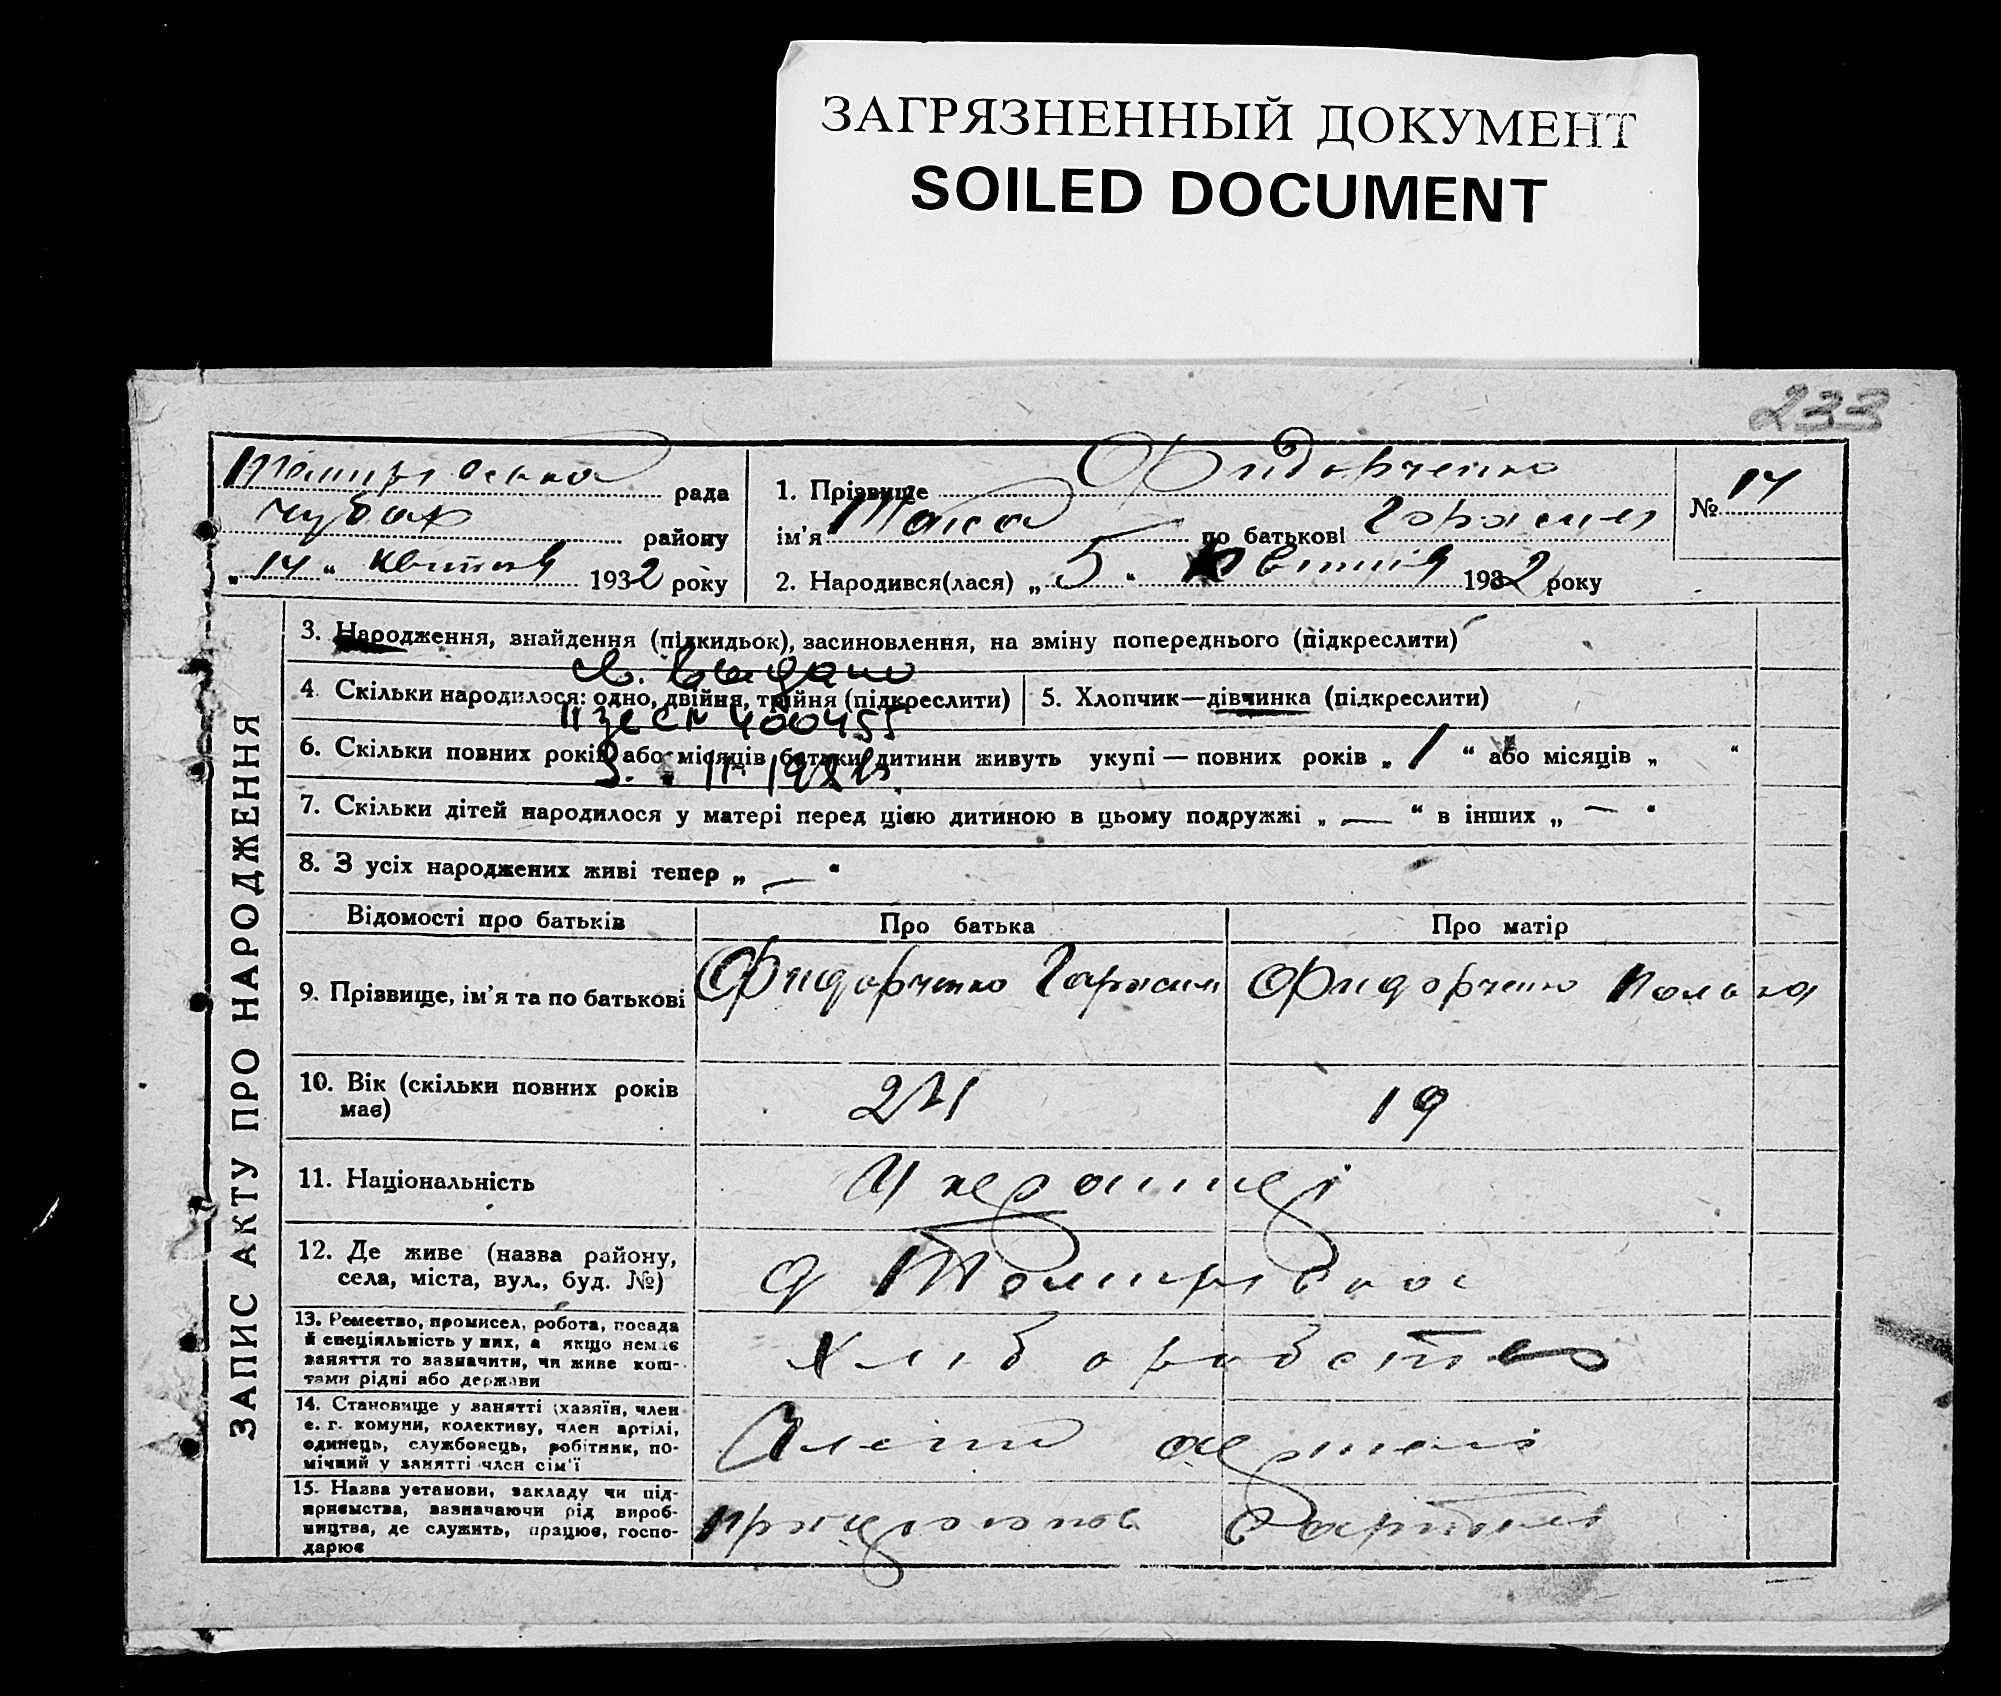 ЗАГРЯЗНЕННЫЙ ДОКУМЕНТ
SOILED DOCUMENT
233
рада
району
„ 14 “ квітня 1932 року
1. Прізвище Фидорченко
ім'я по батькові
2. Народився(лася) „ 5 “ Квітня 1932 року
№ 14
ЗАПИС АКТУ ПРО НАРОДЖЕННЯ
3. Народження, знайдення (підкидьок), засиновлення, на зміну попереднього (підкреслити)
4. Скільки народилося: одно, двійня, трійня (підкреслити)
5. Хлопчик—дівчинка (підкреслити)
6. Скільки повних років або місяців батьки дитини живуть укупі — повних років „ 1 “ або місяців „ “
7. Скільки дітей народилося у матері перед цією дитиною в цьому подружжі „ — “ в інших „ — “
8. З усіх народжених живі тепер „ — “
Відомості про батьків
Про батька
Про матір
9. Прізвище, ім'я та по батькові
Фидорченко Гарасим
Фидорченко
10. Вік (скільки повних років
має)
24
19
11. Національність
Украинці
12. Де живе (назва району,
села, міста, вул., буд. №)
13. Ремество, промисел, робота, посада
й спеціяльність у них, а якщо немає
заняття то зазначити, чи живе кош-
тами рідні або держави
Хліборобство
14. Становище у занятті (хазяїн, член
с. г. комуни, колективу, член артілі,
одинець, службовець, робітник, по-
мічний у занятті член сім'ї
Члени артелі
15. Назва установи, закладу чи під-
приємства, зазначаючи рід вироб-
ництва, де служить, працює, госпо-
дарює